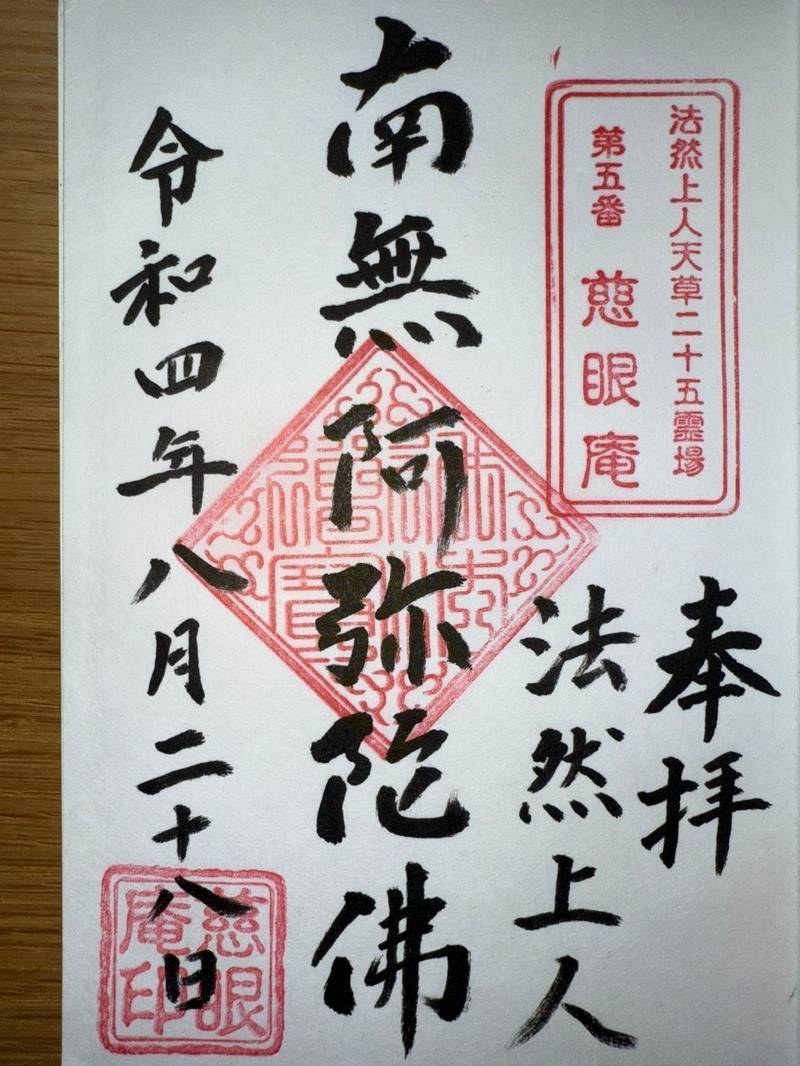 法然上人天草二十五霊場
第五番 慈眼庵
奉拝
法然上人
南無阿弥陀佛
佛法僧寳
令和四年八月二十八日
慈眼
庵印